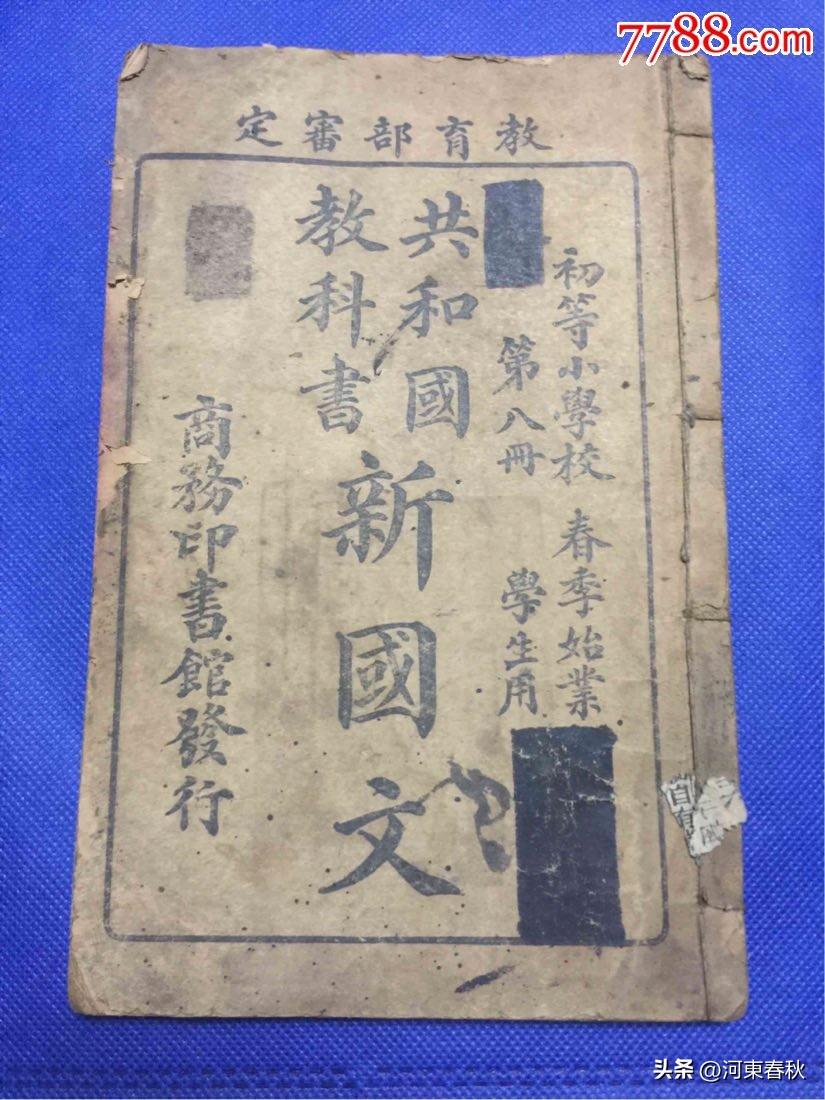 7788.com
教育部審定
初等小學校 春季始業
第八冊 學生用
共和國
教科書
新國文
商務印書館發行
自有
头条 @河東春秋